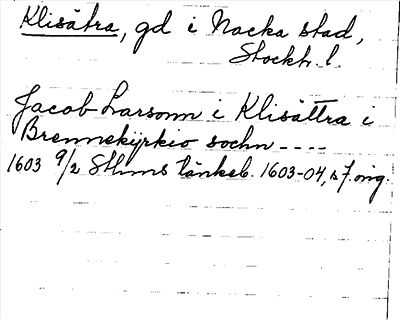 Klisätra, gd i Nacka stad,
Stockh. l.
Jacob Larsonn i Klisättra i
Brennekÿrkio sochn ----
1603 9/2 Sthms tänkeb. 1603-04, s 7. mg.